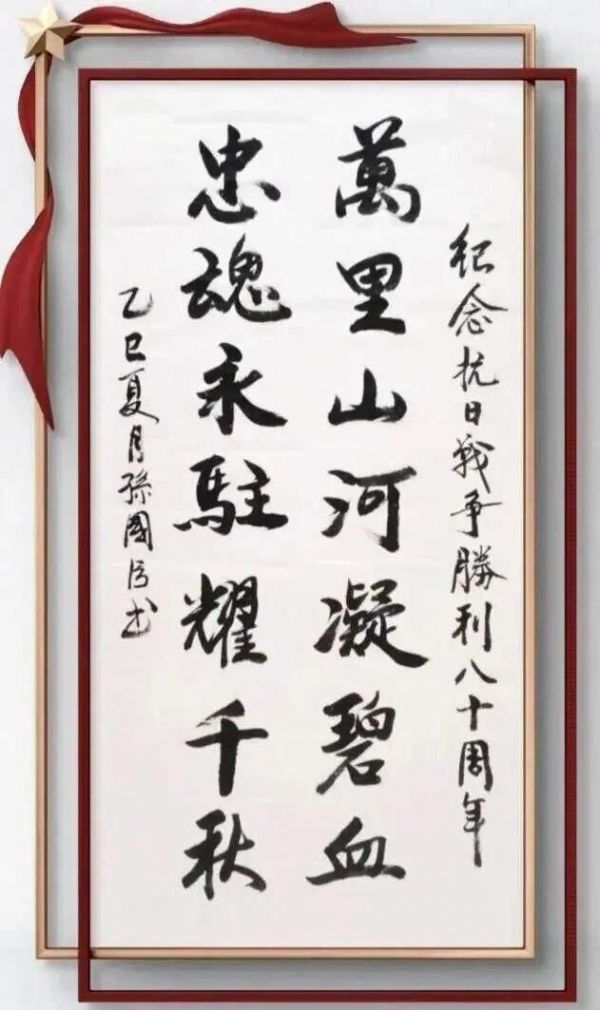 纪念抗日戰争勝利八十周年
萬里山河凝碧血
忠魂永駐耀千秋
乙巳夏月孫國书